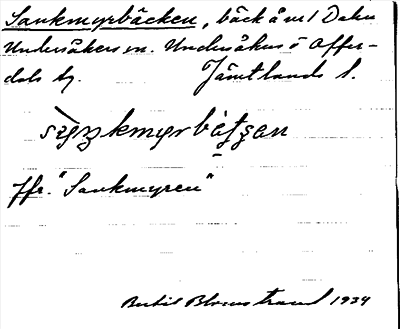 Sankmyrbäcken, bäck å nr 1 Dalen
Undersåkers sn. Undersåkers o Offer-
dals tg. Jämtlands l.
sɑŋkmyrbɛtʃən
jfr. "Sankmyren"
Bertil Blomstrand 1934